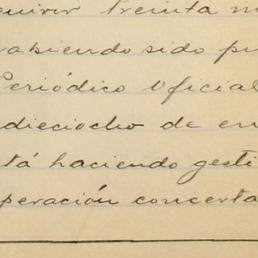 quirir treinta m
habiendo sido pu
Periódico Oficial
dieciocho de en
stá haciendo gesti
peración concerta